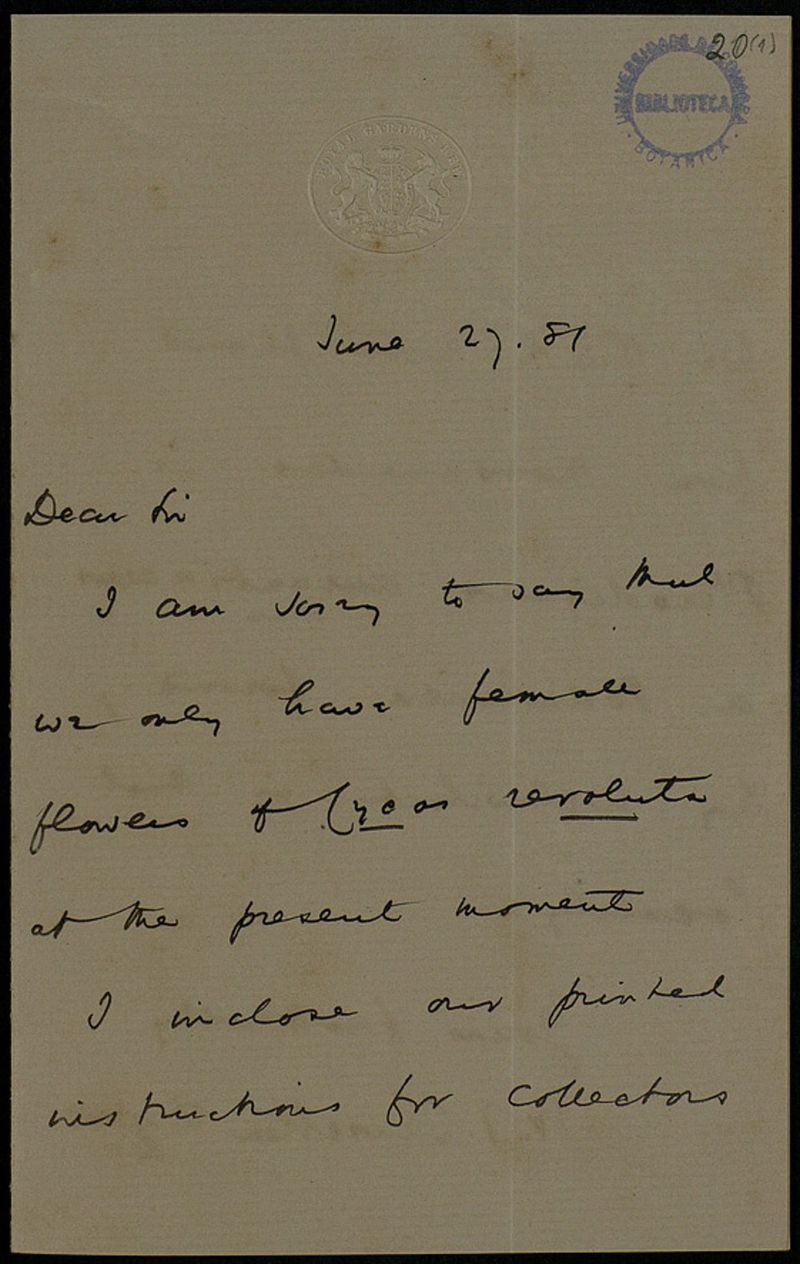 20(1)
UNIVERSIDADE DE COIMBRA
BIBLIOTECA
BOTANICA
ROYAL GARDENS KEW
June 27. 81
Dear Sir
I am sorry to say that
we only have female
flowers of Cycas revoluta
at the present moment
I inclose our printed
instructions for collectors